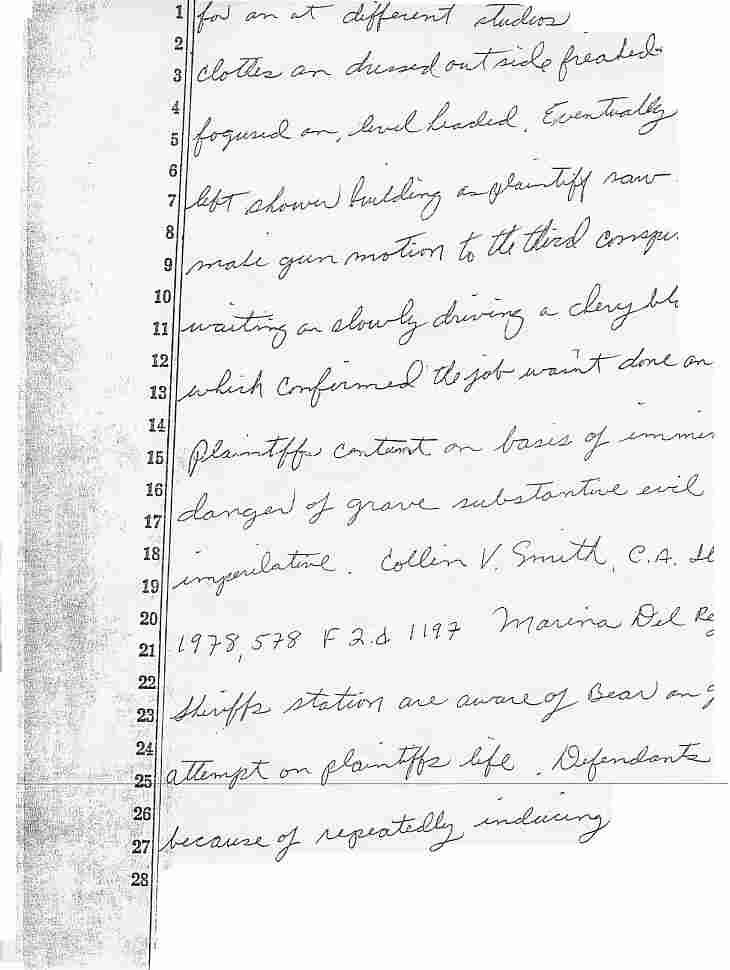 1 for an at different studios
2
3 clothes an dressed outside freaked
4
5 fogused on, level headed. Eventually
6
7 left shower building as plaintiff saw
8
9 make gun motion to the third conspi
10
11 waiting an slowly driving a chevy bl
12
13 which confirmed the job wasn't done an
14
15 Plaintiffs content on basis of immin
16
17 danger of grave substantive evil
18
19 imperilative. Collin V. Smith, C.A. Il
20
21 1978, 578 F 2.d 1197 Marina Del Re
22
23 Sheriffs station are aware of Bear an
24
25 attempt on plaintiffs life. Defendants
26
27 because of repeatedly inducing
28